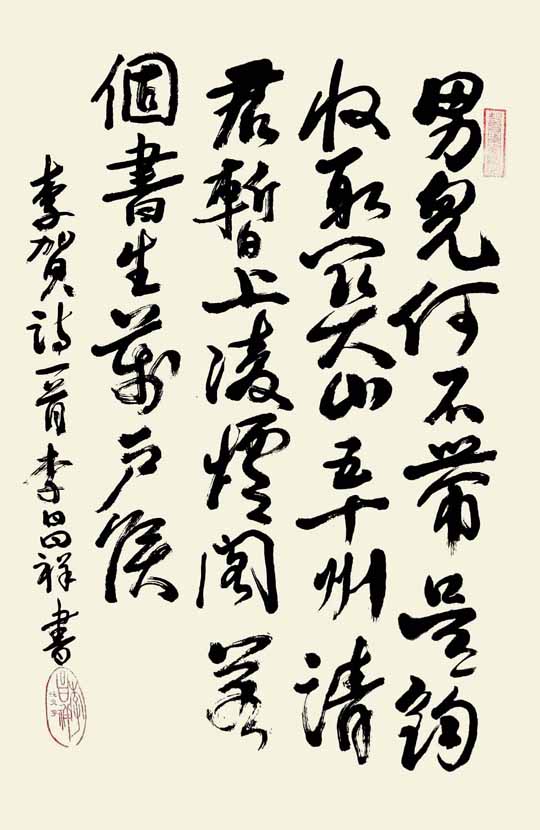 男兒何不帶吳鈎
收取關山五十州請
君暫上凌煙閣若
個書生萬戶侯
李賀詩一首李昌祥書